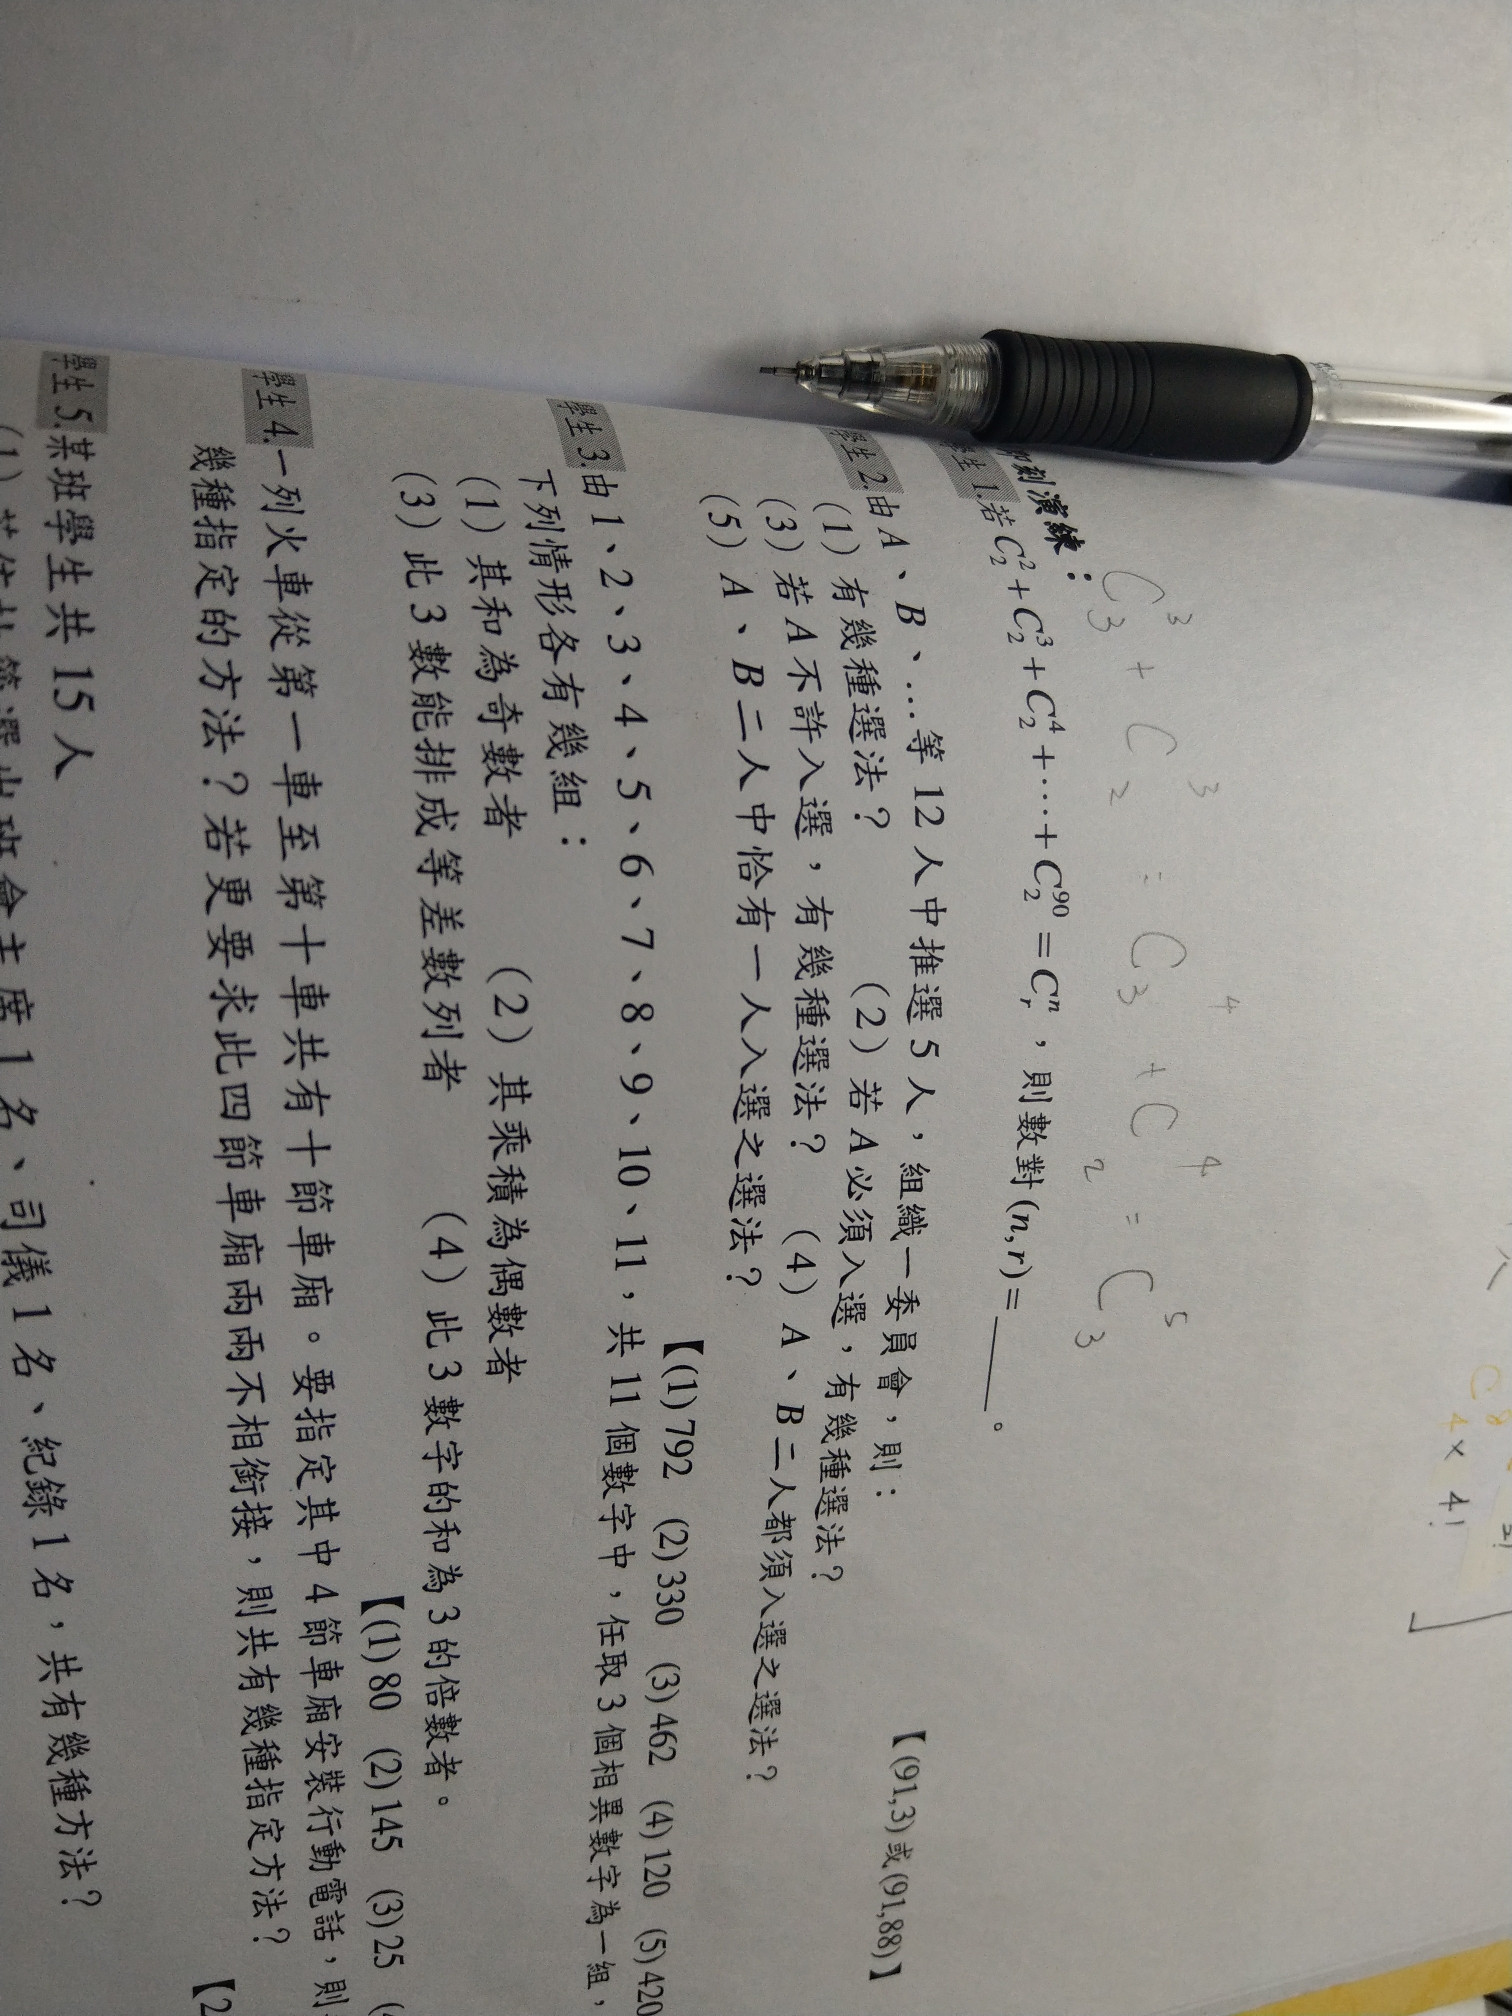 C₃³ + C₂³ = C₃⁴ + C₂⁴ = C₃⁵
C₄⁸ × 4!
2!
即刻演練：
學生1.若 C₂² + C₂³ + C₂⁴ + ⋯ + C₂⁹⁰ = Cᵣⁿ ，則數對(n,r) = ____。
【(91,3)或(91,88)】
學生2.由 A、B、…等 12 人中推選 5 人，組織一委員會，則：
(1) 有幾種選法？ (2) 若 A 必須入選，有幾種選法？
(3) 若 A 不許入選，有幾種選法？ (4) A、B 二人都須入選之選法？
(5) A、B 二人中恰有一人入選之選法？
【(1)792 (2)330 (3)462 (4)120 (5)420
學生3.由 1、2、3、4、5、6、7、8、9、10、11，共 11 個數字中，任取 3 個相異數字為一組，
下列情形各有幾組：
(1) 其和為奇數者 (2) 其乘積為偶數者
(3) 此 3 數能排成等差數列者 (4) 此 3 數字的和為 3 的倍數者。
【(1)80 (2)145 (3)25 (
學生4.一列火車從第一車至第十車共有十節車廂。要指定其中 4 節車廂安裝行動電話，則
幾種指定的方法？若更要求此四節車廂兩兩不相銜接，則共有幾種指定方法？
【2
學生5.某班學生共 15 人
(1) 若件抽籤選出班會主席 1 名、司儀 1 名、紀錄 1 名，共有幾種方法？